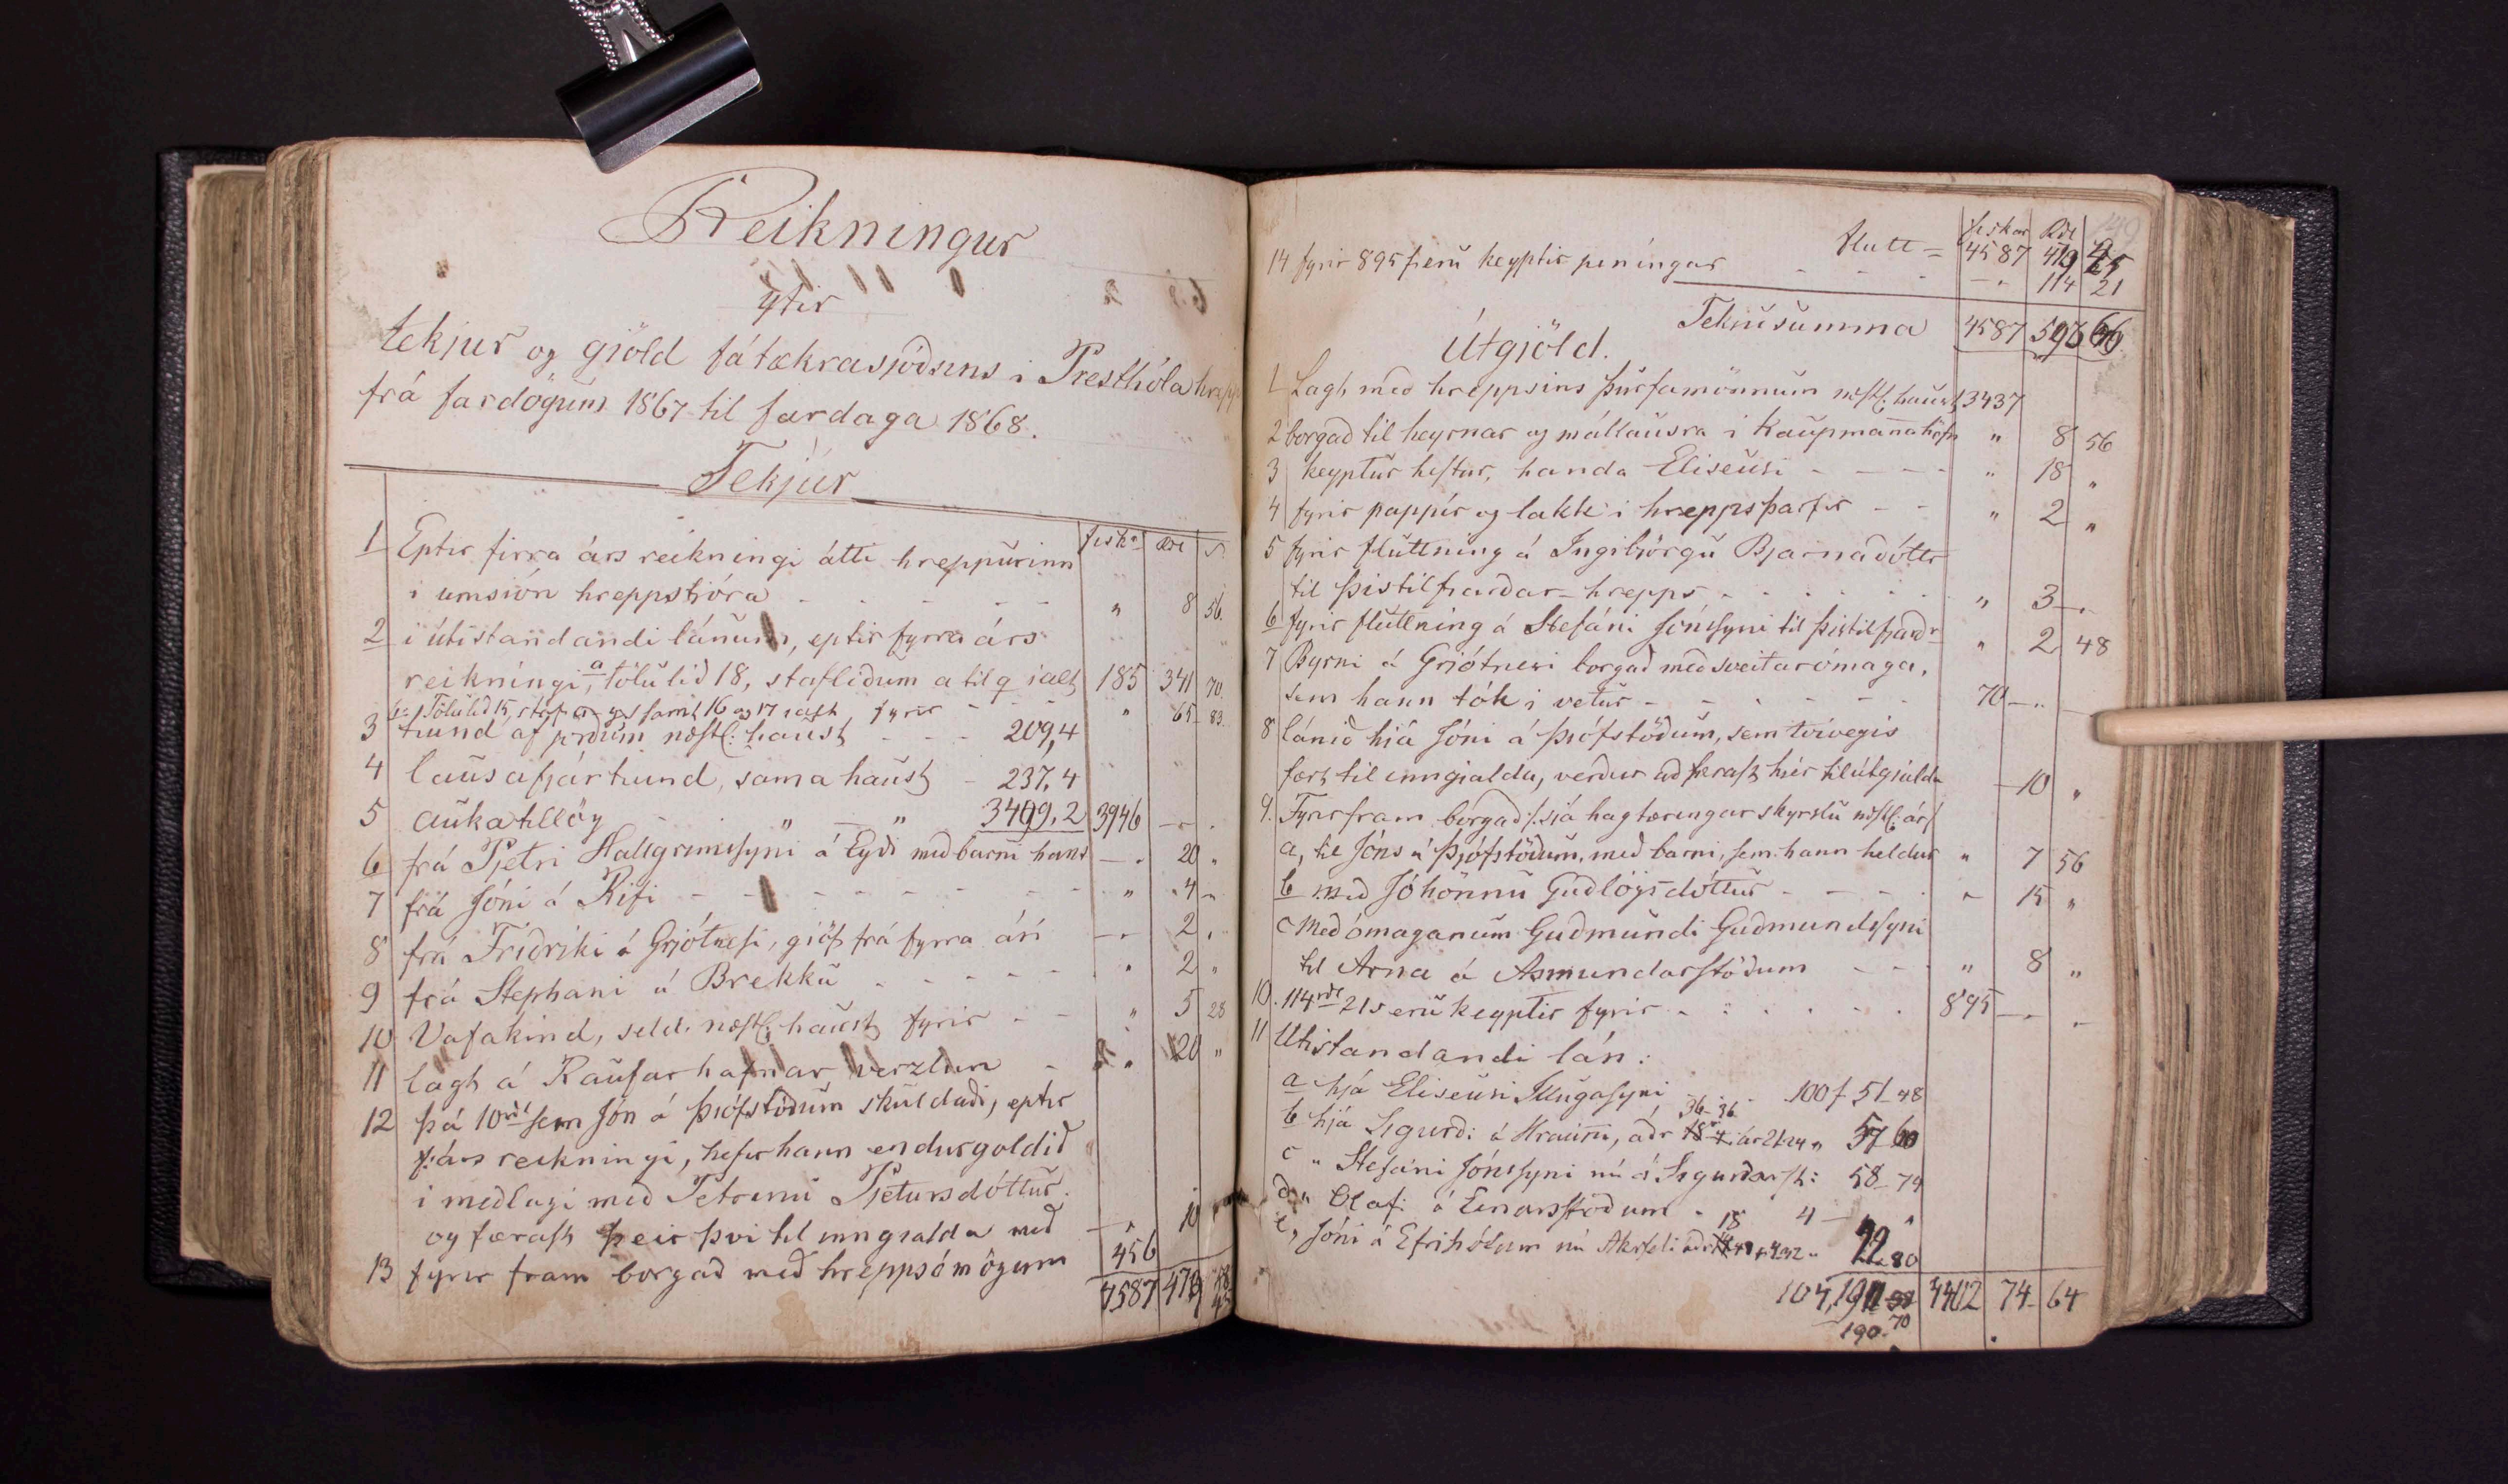 Reikningur
yfir
tekjur og gjöld fátækrasjóðsins i Presthóla hrepp
frá fardögum 1867 til fardaga 1868.
Tekjur
fiska Rdl s.
1 Eptir firra árs reikningi átti hreppurinn
i umsión hreppstióra - - - - - „ 8 56.
2 i útistandandi lánum, eptir fyrra árs
reikningi, a tölulið 18, stafliðum a til q ialt 185 341 70.
b: Tölulið 15, samt 16 og 17 fyrir - - - „ 65 83.
3 tiund af jörðum næstl: haust - - - 209,4
4 lausafjártiund, sama haust - 237,4
5 aukatillög - „ - „ 3499,2 3946 - „ .
6 frá Pjetri Hallgrimssyni á Eyði með barni hans - „ 20 „
7 frá Jóni á Rifi - - - - - - - „ 4 „
8 frá Friðriki á Grjótnesi, giöf frá fyrra ári - „ 2 „
9 frá Stephani á Brekku - - - - - „ 2 „
10 Vafakind, seld næstl: haust fyrir - - „ 5 28
11 lagt á Raufarhafnar verzlun - „ 20 „
12 þá 10rdl sem Jón á Þiófstöðum skuldaði, eptir
f: árs reikningi, hefur hann endurgoldið
i meðlagi með Petrinu Pjetursdóttur.
og færast þeir því til inngialda með - „ 10
13 fyrir fram borgað með hreppsómögum 456
4587
149
fiskar Rdl
flutt = 4587 419 45
14 fyrir 895 f eru keyptir peningar - - - - „ 114 21
Tekiusumma 4587 66
Útgjöld.
1 Lagt með hreppsins þurfamönnum næstl: haust 3437
2 borgað til heyrnar og mállausra i Kaupmannahöfn „ 8 56
3 keyptur hestur, handa Eliseusi - - - - „ 18 „
4 fyrir pappir og lakk i hreppsþarfir - - „ 2 „
5 fyrir fluttning á Ingibjörgu Bjarnadóttr
til Þistilfjarðar-hrepps - - - - - „ 3 - „
6 fyrir fluttning á Stefáni Jónssyni til Þistilfjarðr „ 2 48
7 Byrni á Griótnesi borgað með sveitarómaga,
sem hann tók i vetur - - - - - 70 - „ -
8 lánið hiá Jóni á Þiófstöðum, sem tvívegis
fært til inngialda, verður að færast hér til útgialda - 10 „
9. Fyrirfram borgað /: siá hagtæringar skyrslu næstl: árs/
a, til Jóns á Þjófstöðum, með barni, sem hann heldur „ 7 56
b með Jóhönnu Guðlögsdóttur - - - - „ 15 „
c Með ómaganum Guðmundi Guðmundssyni
til Arna á Asmundarstöðum - - - „ 8 „
10. 114rdl 21s eru keyptir fyrir - - - - - 895 - „ „
11 Utistandandi lán:
a hjá Eliseusi Illugasyni - 100 f 51 48
36-36
b hjá Sigurði á Hrauni, aðr 57 60
c „ Stefáni Jónssyni nú á Sigurðarst: 58-74
d „ Olafi á Einarsstöðum - 4 - „
18
e, Jóni á Efrihólum nú Akrseli 22 80
104, 4402 74 64
190-70